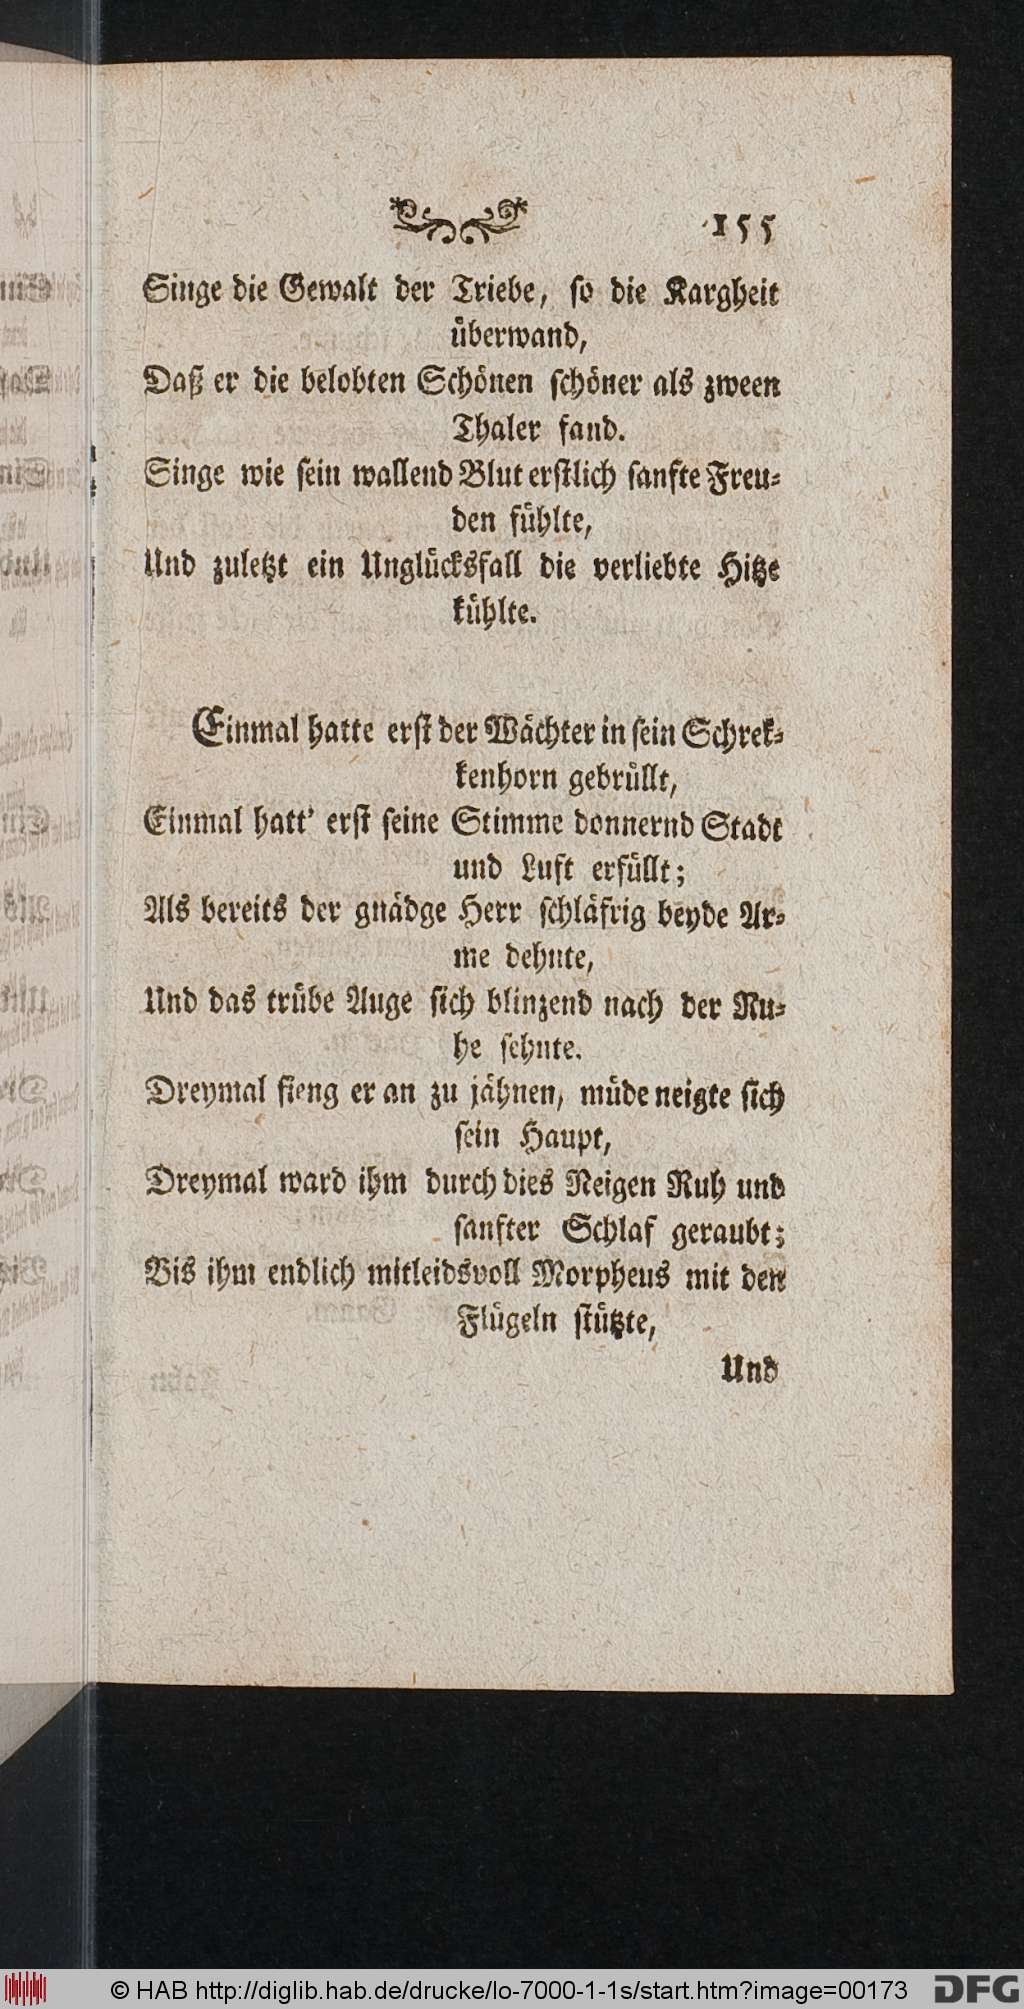 155
Singe die Gewalt der Triebe, so die Kargheit
überwand,
Daß er die belobten Schönen schöner als zween
Thaler fand.
Singe wie sein wallend Blut erstlich sanfte Freu-
den fühlte,
Und zuletzt ein Unglücksfall die verliebte Hitze
kühlte.
Einmal hatte erst der Wächter in sein Schrek-
kenhorn gebrüllt,
Einmal hatt' erst seine Stimme donnernd Stadt
und Luft erfüllt;
Als bereits der gnädge Herr schläfrig beyde Ar-
me dehnte,
Und das trübe Auge sich blinzend nach der Ru-
he sehnte.
Dreymal fieng er an zu jähnen, müde neigte sich
sein Haupt,
Dreymal ward ihm durch dies Neigen Ruh und
sanfter Schlaf geraubt;
Bis ihm endlich mitleidsvoll Morpheus mit den
Flügeln stützte,
Und
© HAB http://diglib.hab.de/drucke/lo-7000-1-1s/start.htm?image=00173
DFG